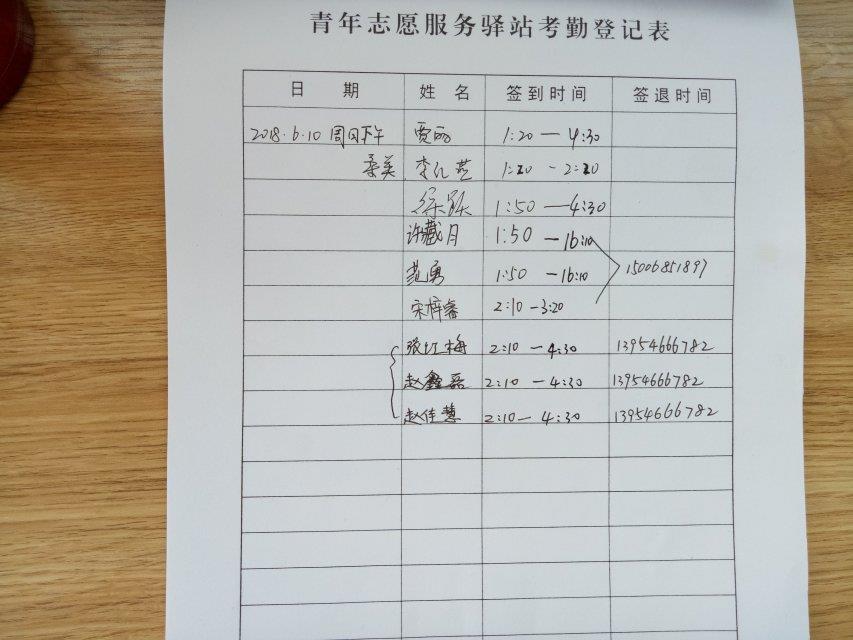 青年志愿服务驿站考勤登记表
日 期 姓 名 签到时间 签退时间
2018.6.10 周日下午 贾丽 1:20 — 4:30
柔美 李仁芸 1:20 - 2:20
徐跃 1:50 — 4:30
许藏月 1:50 — 16:10
范勇 1:50 — 16:10 15006851897
宋梓睿 2:10 - 3:20
张红梅 2:10 — 4:30 13954666782
赵鑫磊 2:10 — 4:30 13954666782
赵佳慧 2:10 — 4:30 13954666782